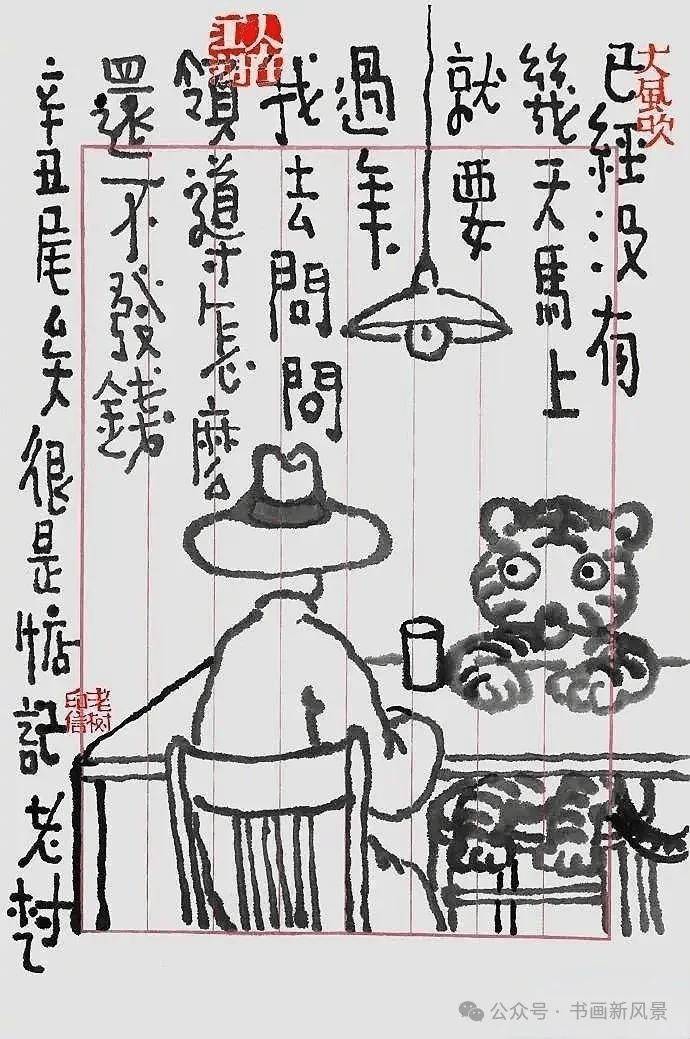 大風吹
已經没有
幾天馬上
就要
過年
我去問問
領導怎麼
還不發錢
人在江湖
辛丑尾矣很是惦記老树
老树印信
公众号·书画新风景